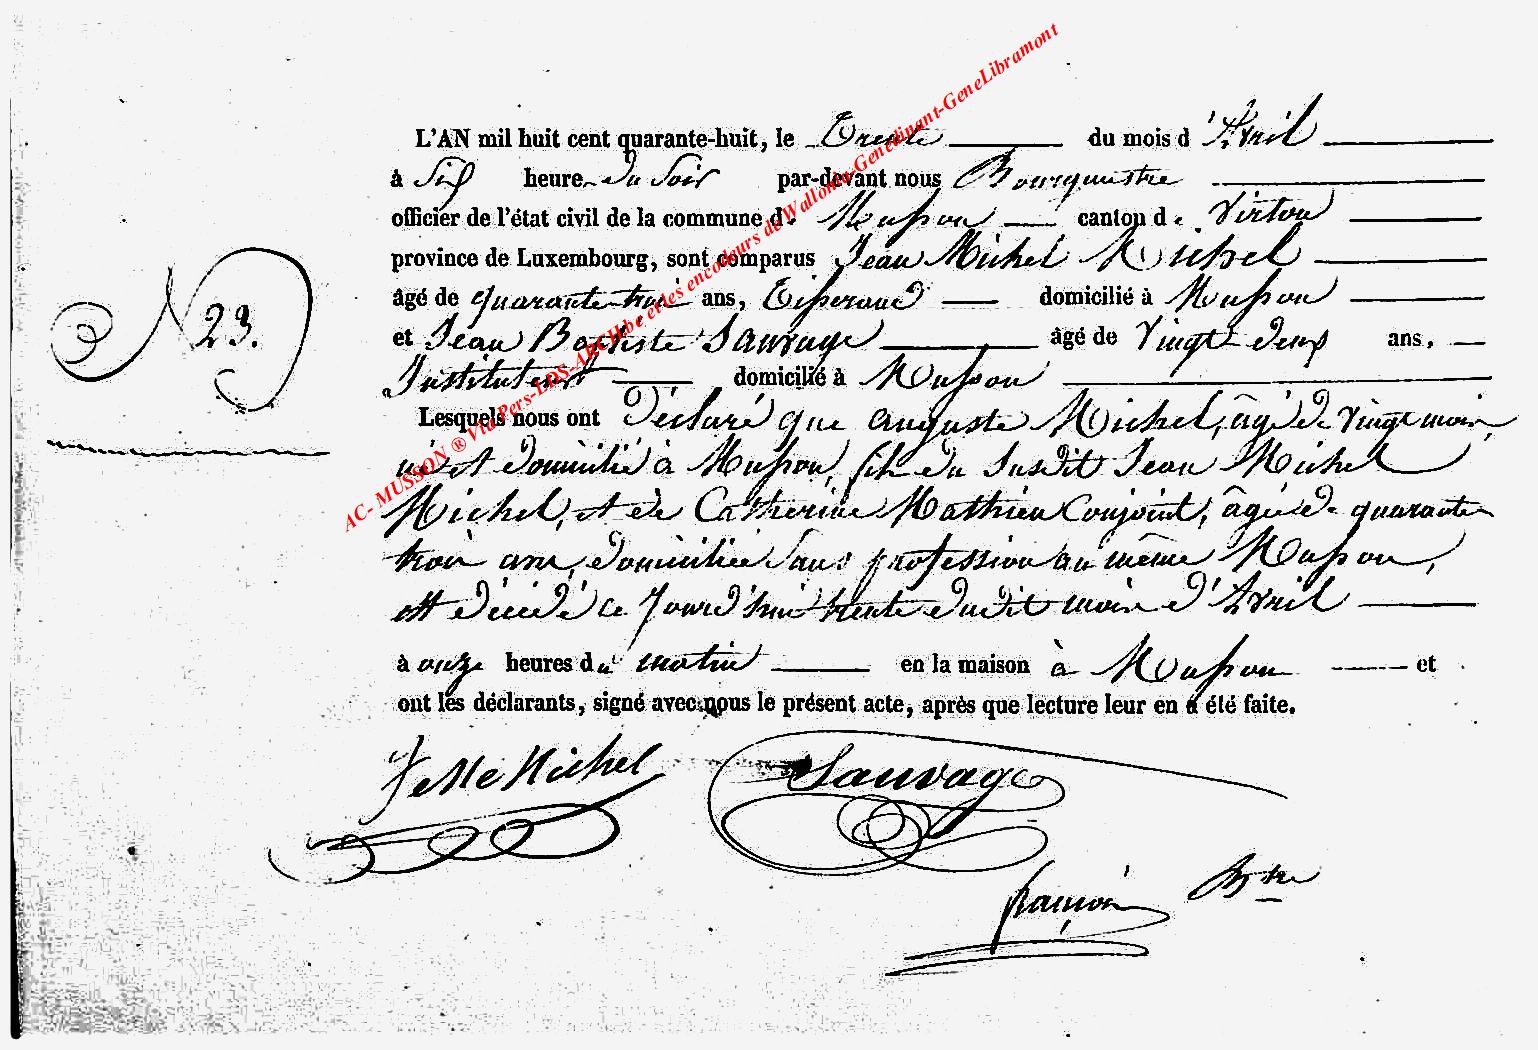 L'AN mil huit cent quarante-huit, le Trente du mois d'Avril
à Six heure du Soir par-devant nous Bourguestre
officier de l'état civil de la commune de Musson canton de Virton
province de Luxembourg, sont comparus Jean Michel Michel
âgé de quarante trois ans, Tisserand domicilié à Musson
N 23.
et Jean Baptiste Sauvage âgé de Vingt deux ans,
Instituteur domicilié à Musson
Lesquels nous ont Déclaré que Auguste Michel, âgé de vingt mois,
né et domicilié à Musson, fils du Susdit Jean Michel
Michel, et de Catherine Mathieu Conjoint, âgée de quarante
trois ans, domiciliée Sans profession au même Musson,
est décédé ce Jourd'hui trente dudit mois d'Avril
à onze heures du matin en la maison à Musson et
ont les déclarants, signé avec nous le présent acte, après que lecture leur en a été faite.
J Mle Michel Sauvage
AC- MUSSON ® Via Pers-LDS-ARCH be et les encodeurs de Wallonia-Genedinant-GeneLibramont